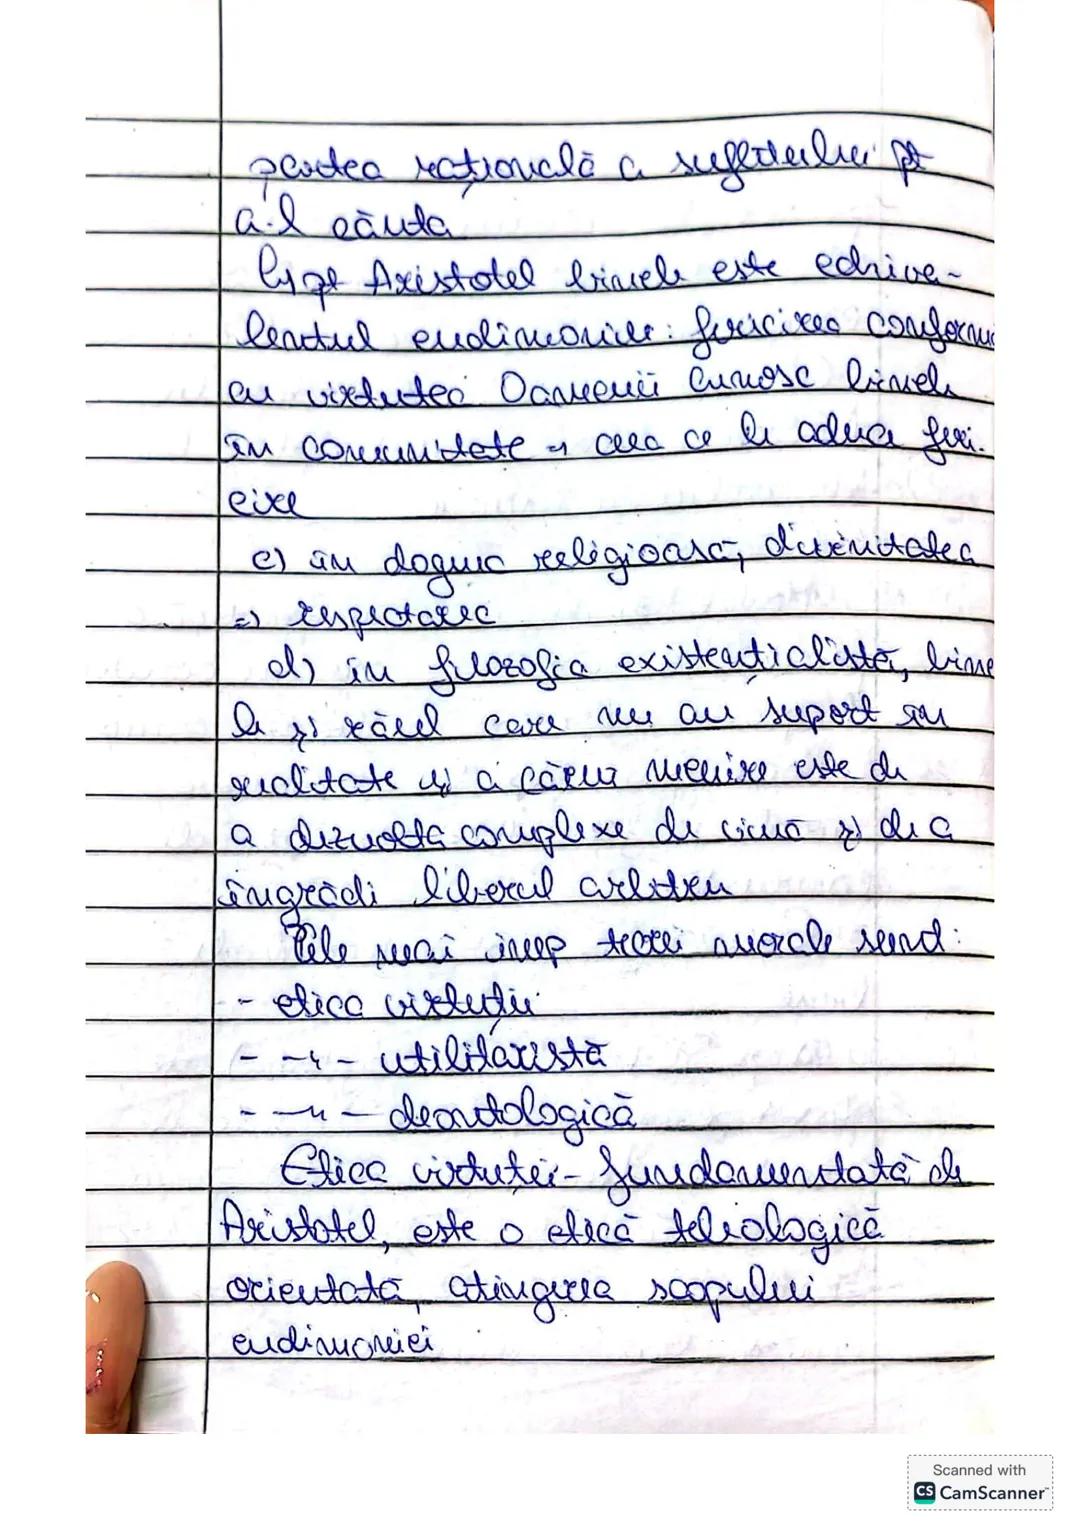 partea rațională a sufletului pt
a-l căuta
b) pt Aristotel binele este echiva-
lentul eudimoniei: fericirea conformă
cu virtutea Oamenii cunosc binele
în comunitate și ceea ce le aduce feri-
cire
c) în dogma religioasă, divinitatea
=> respectarea
d) în filozofia existențialistă, bine
le și răul care nu au suport în
realitate și a căror menire este de
a dezvolta complexe de vină și de a
îngrădi liberul arbitru
Cele mai imp teorii morale sund:
- etica virtuții
- -〃- utilitaristă
- -〃- deontologică
Etica virtuței - fundamentată de
Aristotel, este o etică teleologică
orientată, atingerea scopului
eudimoniei
Scanned with
CS CamScanner